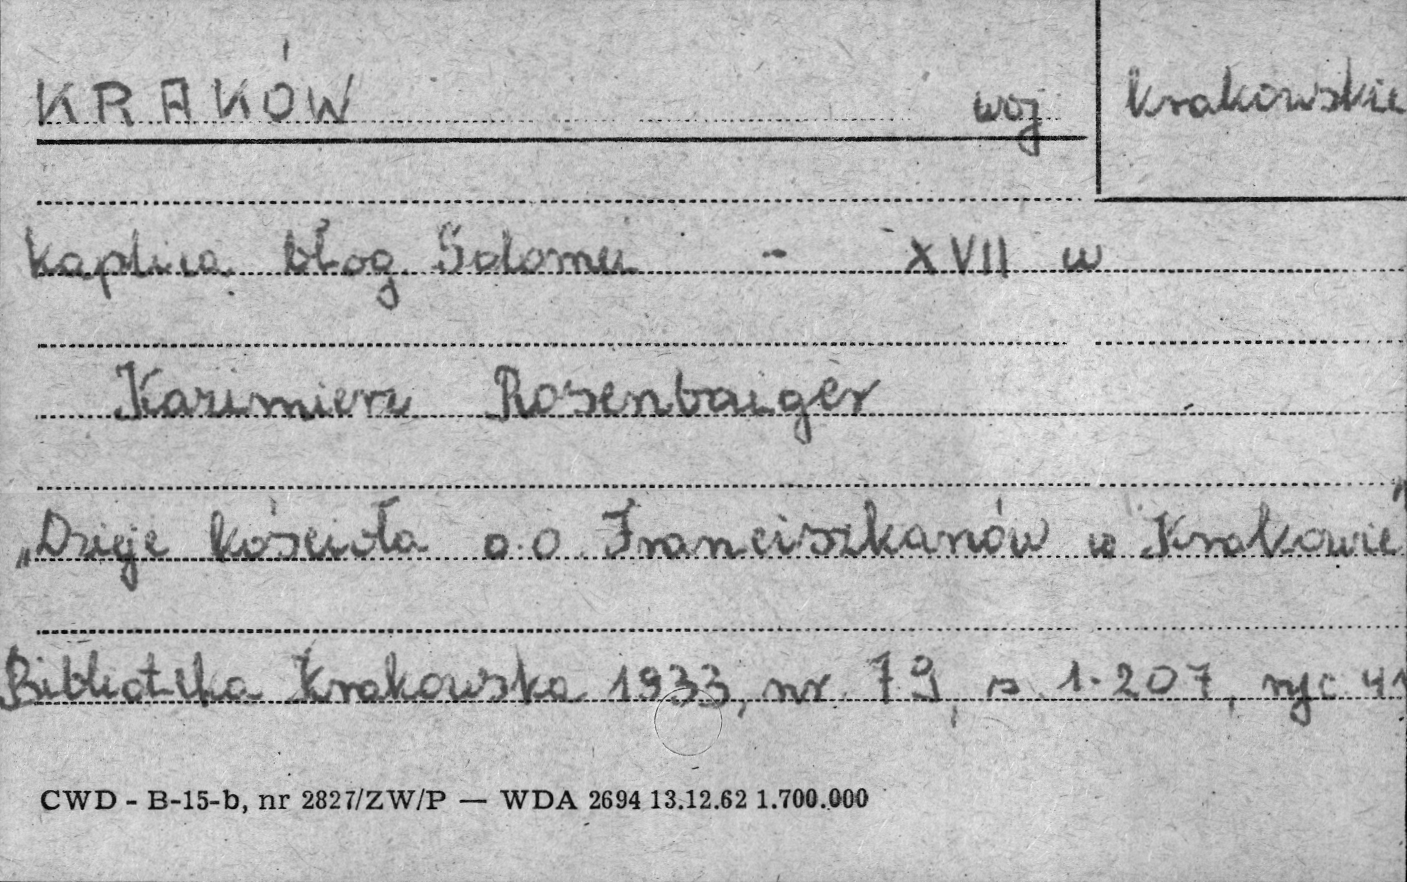 KRAKÓW woj krakowskie
Kaplica błog. Salomei - XVII w
Kazimierz Rosenbaiger
„Dzieje kościoła o.o. Franciszkanów w Krakowie"
Biblioteka Krakowska 1933, nr. 79, s 1-207, ryc 41
CWD - B-15-b, nr 2827/ZW/P — WDA 2694 13.12.62 1.700.000